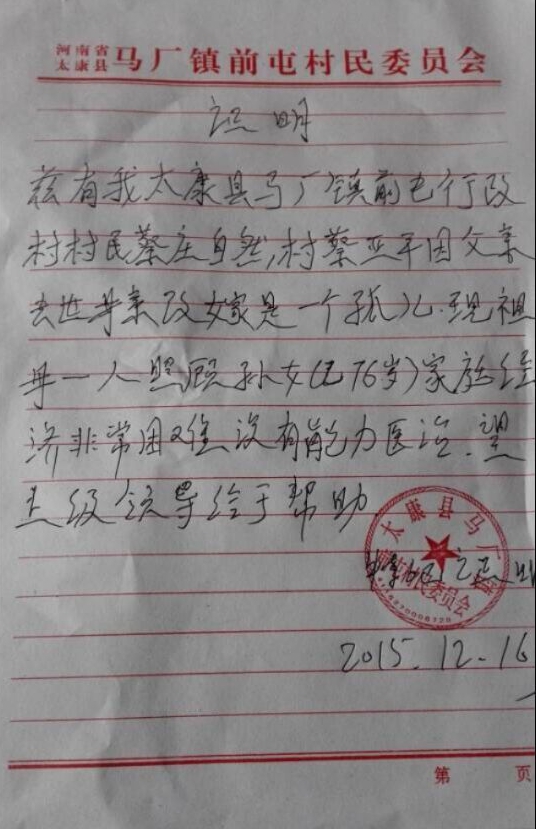 河南省
太康县 马厂镇前屯村民委员会
证明
兹有我太康县马厂镇前屯行政
村村民蔡庄自然,村蔡亚平因父亲
去世母亲改嫁是一个孤儿.现祖
母一人照顾孙女(已76岁)家庭经
济非常困难没有能力医治.望
上级领导给于帮助.
太康县马厂
村民委员会
2015.12.16
第 页